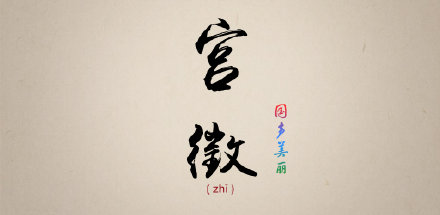 宫
徵
(zhi)
国乡美丽